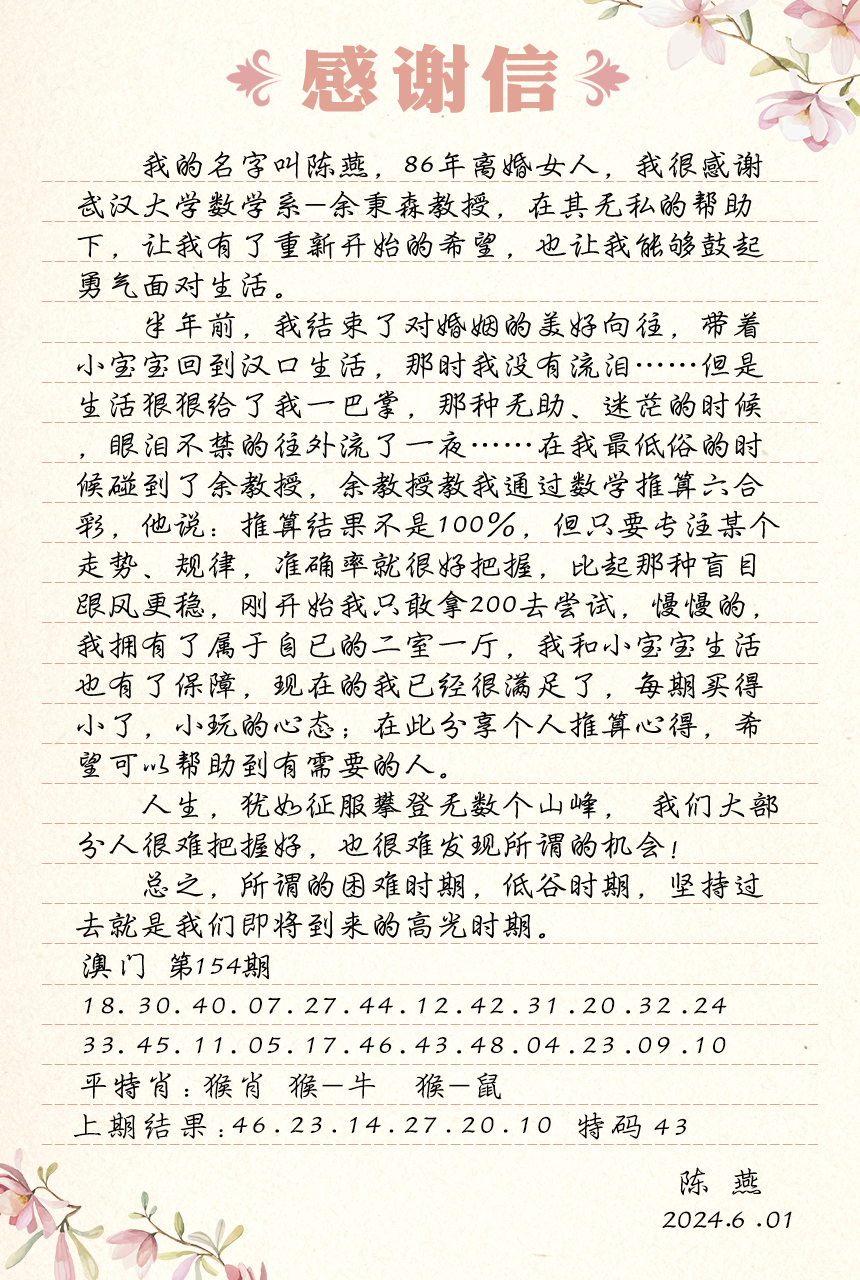 感谢信
我的名字叫陈燕，86年离婚女人，我很感谢
武汉大学数学系—余秉森教授，在其无私的帮助
下，让我有了重新开始的希望，也让我能够鼓起
勇气面对生活。
半年前，我结束了对婚姻的美好向往，带着
小宝宝回到汉口生活，那时我没有流泪……但是
生活狠狠给了我一巴掌，那种无助、迷茫的时候
，眼泪不禁的往外流了一夜……在我最低俗的时
候碰到了余教授，余教授教我通过数学推算六合
彩，他说：推算结果不是100%，但只要专注某个
走势、规律，准确率就很好把握，比起那种盲目
跟风更稳，刚开始我只敢拿200去尝试，慢慢的，
我拥有了属于自己的二室一厅，我和小宝宝生活
也有了保障，现在的我已经很满足了，每期买得
小了，小玩的心态；在此分享个人推算心得，希
望可以帮助到有需要的人。
人生，犹如征服攀登无数个山峰， 我们大部
分人很难把握好，也很难发现所谓的机会！
总之，所谓的困难时期，低谷时期，坚持过
去就是我们即将到来的高光时期。
澳门 第154期
18.30.40.07.27.44.12.42.31.20.32.24
33.45.11.05.17.46.43.48.04.23.09.10
平特肖：猴肖 猴—牛 猴—鼠
上期结果：46.23.14.27.20.10 特码 43
陈 燕
2024.6.01